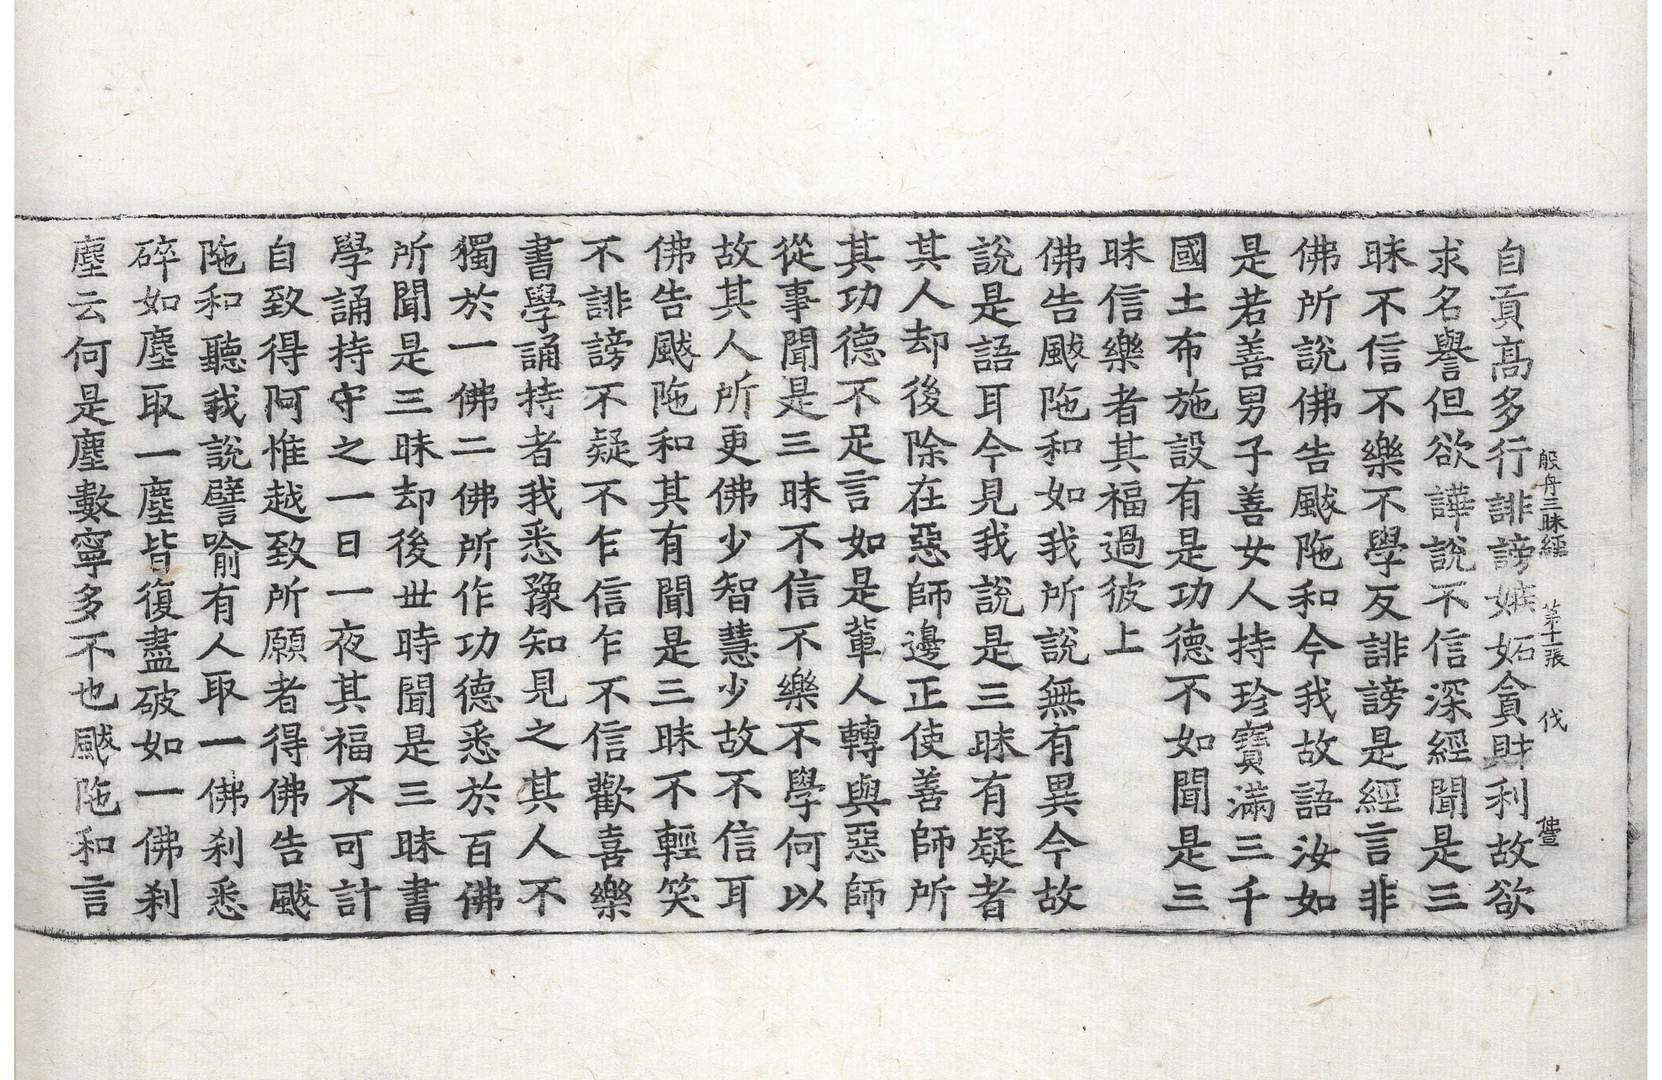 般舟三昧經 第十一張 伐
自貢高多行誹謗嫉妬貪財利故欲
求名譽但欲譁說不信深經聞是三
昧不信不樂不學反誹謗是經言非
佛所說佛告颰陁和今我故語汝如
是若善男子善女人持珍寶滿三千
國土布施設有是功德不如聞是三
昧信樂者其福過彼上
佛告颰陁和如我所說無有異今故
說是語耳今見我說是三昧有疑者
其人却後除在惡師邊正使善師所
其功德不足言如是輩人轉與惡師
從事聞是三昧不信不樂不學何以
故其人所更佛少智慧少故不信耳
佛告颰陁和其有聞是三昧不輕笑
不誹謗不疑不乍信乍不信歡喜樂
書學誦持者我悉豫知見之其人不
獨於一佛二佛所作功德悉於百佛
所聞是三昧却後世時聞是三昧書
學誦持守之一日一夜其福不可計
自致得阿惟越致所願者得佛告颰
陁和聽我說譬喻有人取一佛剎悉
碎如塵取一塵皆復盡破如一佛剎
塵云何是塵數寧多不也颰陁和言